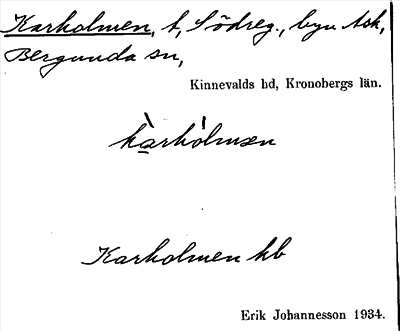 Karholmen, t, Södreg., byn Ask,
Bergunda sn,
Kinnevalds hd, Kronobergs län.
kàrhólmæn
Karholmen hb
Erik Johannesson 1934.